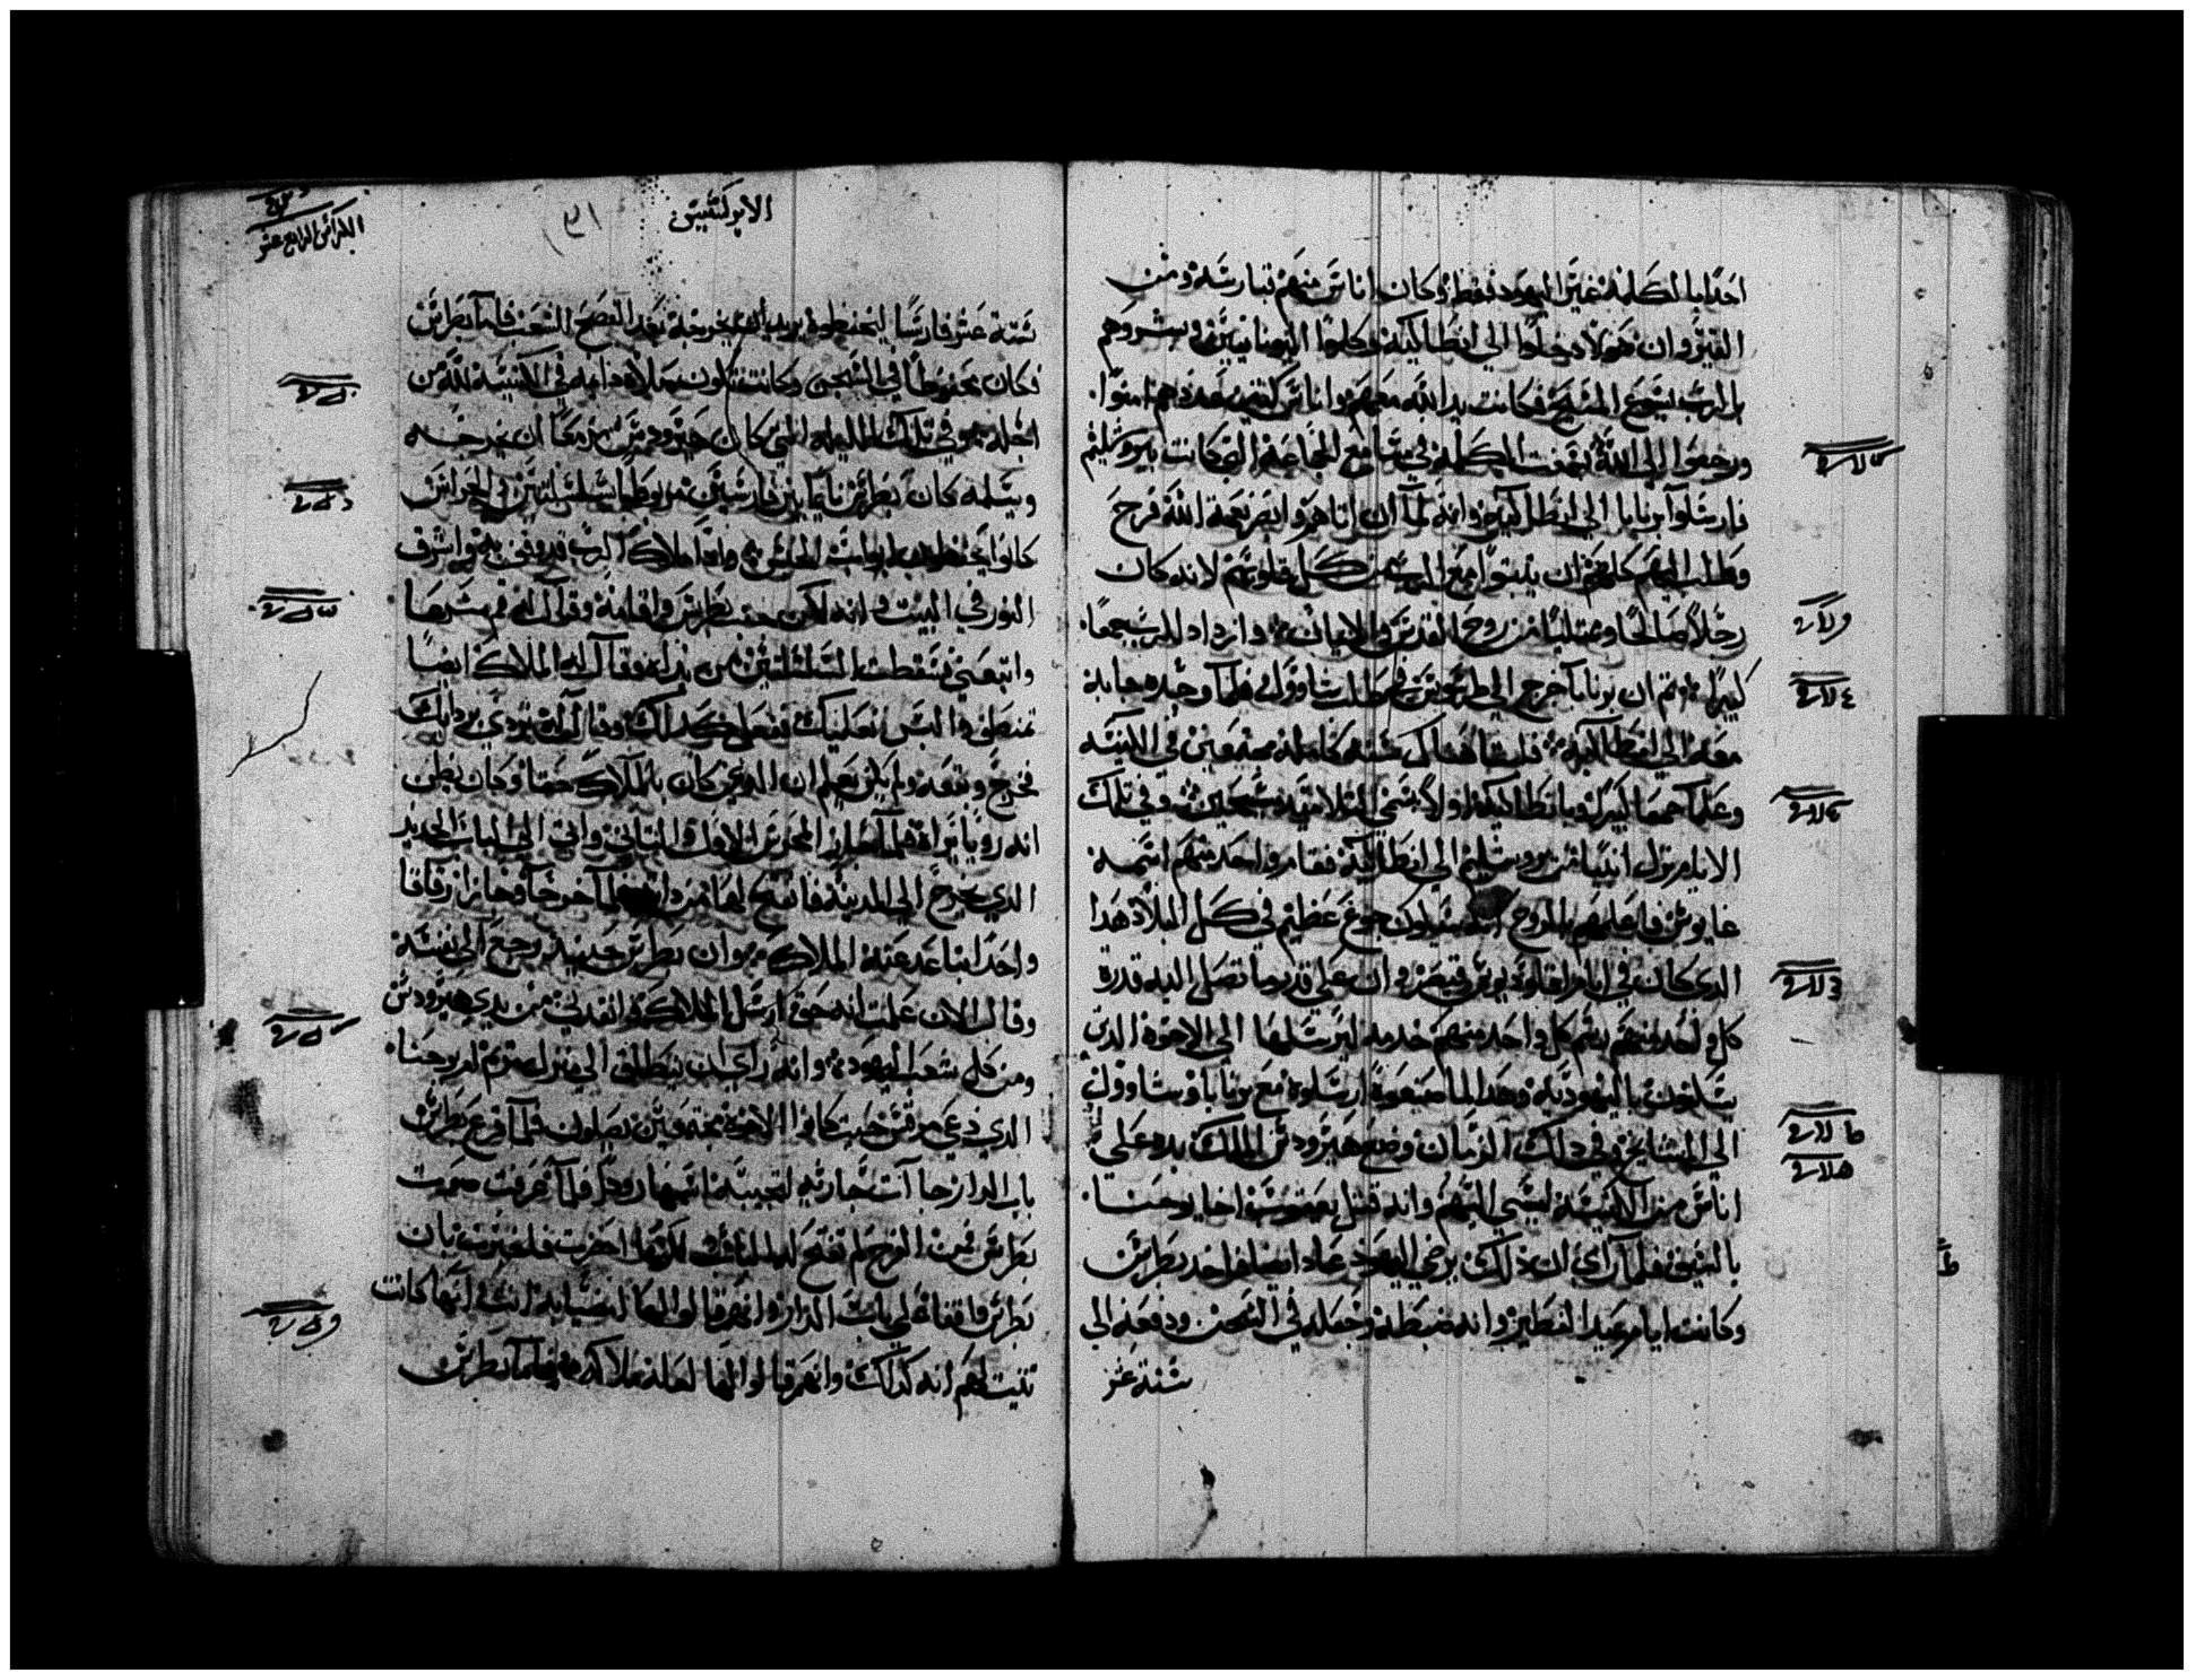 احدا بالكلمة غير اليهود فقط وكان اناس منهم قبارسة ومن
القيروان هولا دخلوا الي انطاكية وكلموا اليونانيين وبشروهم
بالرب يسوع المسيح فكانت يد الله معهم واناس كثير عددهم امنوا
ورجعوا الي الله فسمعت الكلمة في مسامع الجماعة التي كانت بيروشليم
فارسلوا برنابا الي انطاكية وانه لما ان اتاهم وابصر نعمة الله فرح
وطلب اليهم كلهم ان يثبتوا مع الرب من كل قلوبهم لانه كان
رجلا صالحا وممتليا من روح القدس والايمان وازداد للرب جمعا
كبيرا ثم ان برنابا خرج الي طرسوس في طلب شاوول فلما وجده جا به
معه الي انطاكية فلبثا هناك سنة كاملة مجتمعين في الكنيسة
وعلما جمعا كبيرا وبانطاكية اولا سمي التلاميذ مسيحيين وفي تلك
الايام نزل انبيا من يروشليم الي انطاكية فقام واحد منهم اسمه
غابوس فاعلمهم بالروح انه سيكون جوع عظيم في كل البلاد هذا
الذي كان في ايام اقلوديوس قيصر وان علي قدر ما تصل اليه قدرة
كل واحد منهم رسم كل واحد منهم خدمة ليرسلها الي الاخوة الذين
يسكنون باليهودية وهذا لما صنعوه ارسلوه مع برنابا وشاوول
الي المشايخ وفي ذلك الزمان وضع هيرودس الملك يده علي
اناس من الكنيسة ليسي اليهم وانه قتل يعقوب اخا يوحنا
بالسيف فلما راي ان ذلك يرضي اليهود عاد ايضا فاخذ بطرس
وكانت ايام عيد الفطير وانه ضبطه وجعله في السجن ودفعه الي
ستة عشر
الكراس الرابع عشر
الابركسيس
ستة عشر فارسا ليحفظوه يريد ان يخرجه بعد الفصح للشعب فاما بطرس
فكان محفوظا في السجن وكانت تكون صلاة دايمة في الكنيسة لله من
اجله وفي تلك الليلة التي كان هيرودس مزمعا ان يخرجه
ويسلمه كان بطرس نايما بين فارسين مربوطا بسلسلتين والحراس
كانوا يحفظون ابواب الحبس واذا ملاك الرب قد وقف به واشرق
النور في البيت وانه لكز جنب بطرس واقامه وقال له قم بسرعا
واتبعني فسقطت السلسلتين من يداه وقال له الملاك ايضا
تمنطق والبس نعليك ففعل كذلك وقال له تردي بردايك
فخرج وتبعه ولم يكن يعلم ان الذي كان بالملاك حقا وكان يظن
انه رويا يراه فلما جازا المحرس الاول والتاني واتي الي الباب الحديد
الذي يخرج الي المدينة فانفتح لهما من ذاته فلما خرجا وجازا زقاقا
واحدا تباعد عنه الملاك وان بطرس حينيذ رجع الي نفسه
وقال الان علمت انه حق ارسل الملاك وانقذني من يدي هيرودس
ومن كل شعب اليهود وانه راي ان ينطلق الي منزل مريم ام يوحنا
الذي دعي مرقس حيث كانوا الاخوة مجتمعين يصلون فلما قرع بطرس
باب الدار جاات جارية لتجيبه اسمها رودا فلما عرفت صوت
بطرس فمن الفرح لم تفتح له الباب لكنها احضرت فاخبرت بان
بطرس واقفا علي باب الدار وانهم قالوا لها لستي بانت وانها كانت
تثبت لهم انه كذلك وانهم قالوا لها لعله ملاكه فلما بطرس